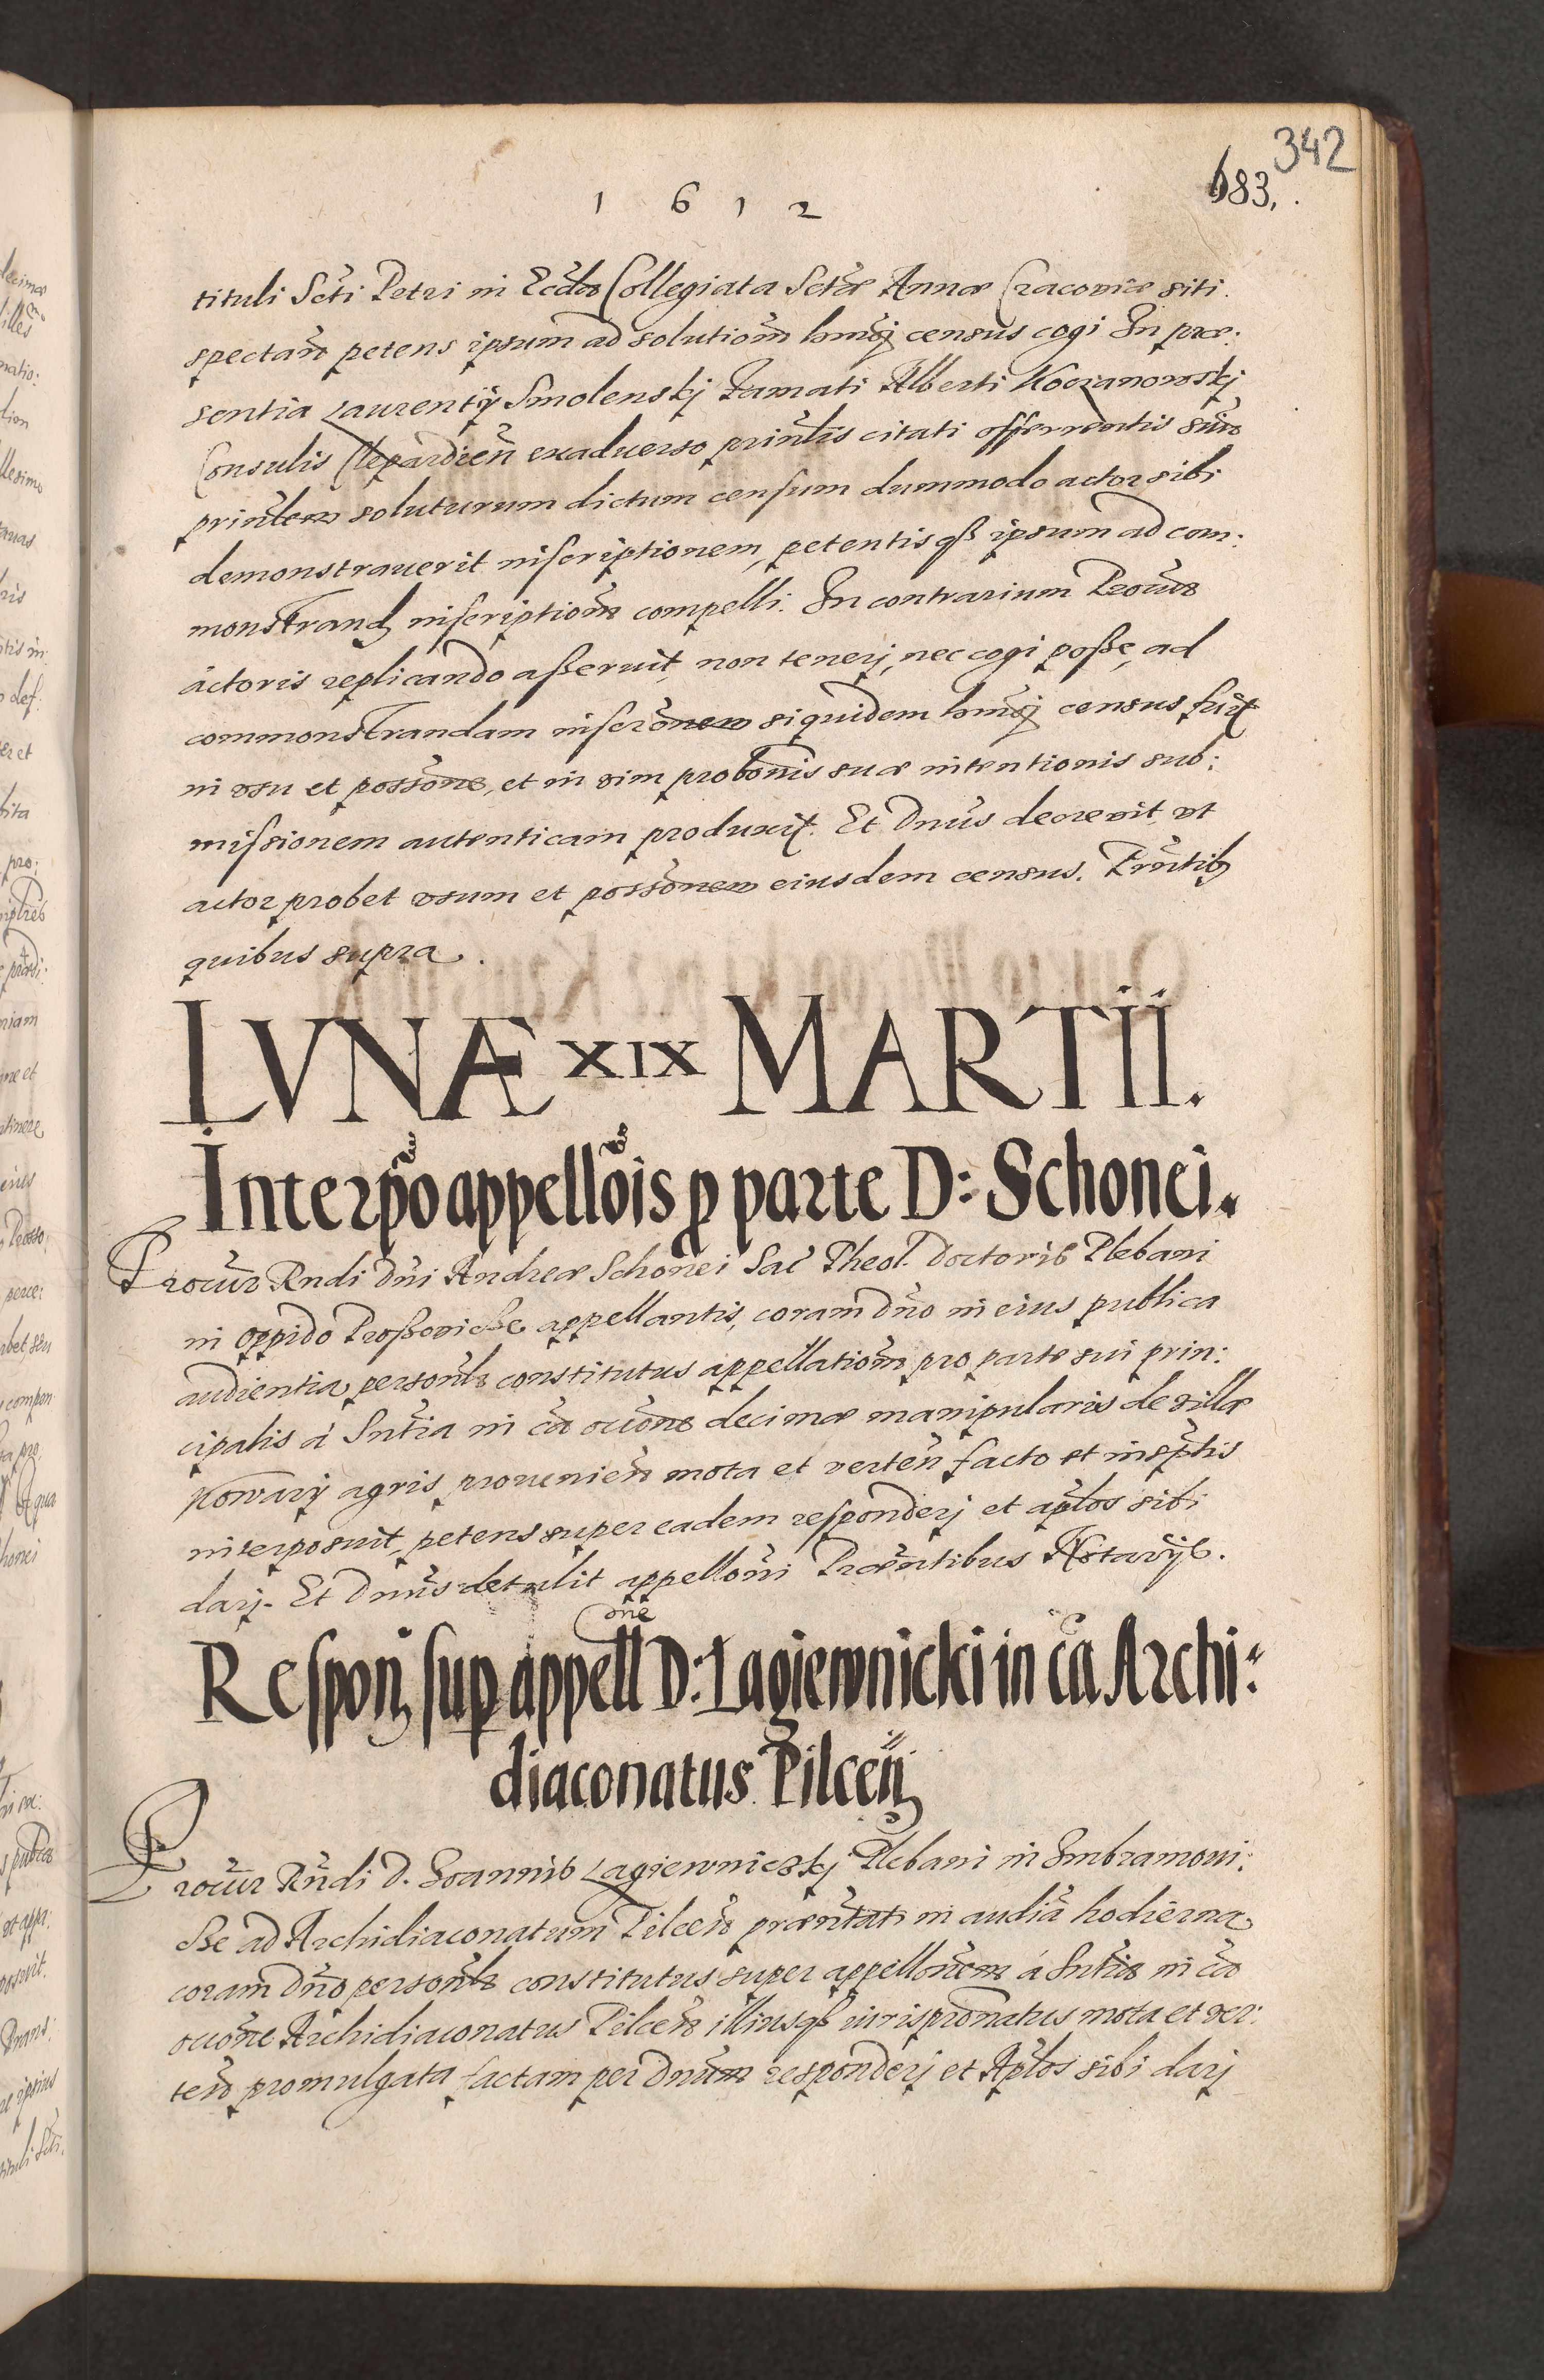 342
683.
1 6 1 2
tituli Scti Petri in Eccla Collegiata Sctæ Annæ Cracoviæ siti
spectan petens ipsum ad solutiom hmoi census cogi In præ:
sentia Laurentij Smolenskj Famati Alberti Koczanowskj
Consulis Clepardien exaduerso prinlis citati offerentis suu
prinlem soluturum dictum censum dummodo actor sibi
demonstrauerit inscriptionem, petentisqß ipsum ad com:
monstrand inscriptiom compelli. In contrarium Procur
actoris replicando aßeruit, non tenerj, nec cogi poße, ad
commonstrandam inscronem siquidem hmoi census fuit
in vsu et possone, et in vim probonis suæ intentionis sub:
missionem autenticam produxit. Et Dnus decrevit, vt
actor probet vsum et possonem eiusdem census. Prntib
quibus supra.
LVNÆ XIX MARTII.
Interpo appellois p parte D: Schonei.
Procur Rndi Dni Andreæ Schonei Sac Theol. Doctoris Plebani
in oppido Proßovicße appellantis, coram Dno in eius publica
audientia personlr constitutus appellatiom pro parte sui prin:
cipalis á Sntia in ca oconne decimæ manipularis de villæ
Kowarÿ agris prouenien mota et verten facto et in scptis
interposuit, petens super eadem responderj et aplos sibi
darj. Et Dnus detulit appelloni Præntibus Notarijs.
one
Respon sup appell D: Lagiewnicki in ca Archi:
diaconatus Pilcen
Procur Rndi D. Ioannis Lagiewnicskj Plebani in Imbramovi:
cße ad Archidiaconatum Pilcen præntati in audia hodierna
coram Dno personlr constitutus super appellonem á Sntia in ca
occone Archidiaconatus Pilcen illiusqß iurispronatus mota et ver:
ten promulgata factam per Dnum responderj et Aplos sibi darj